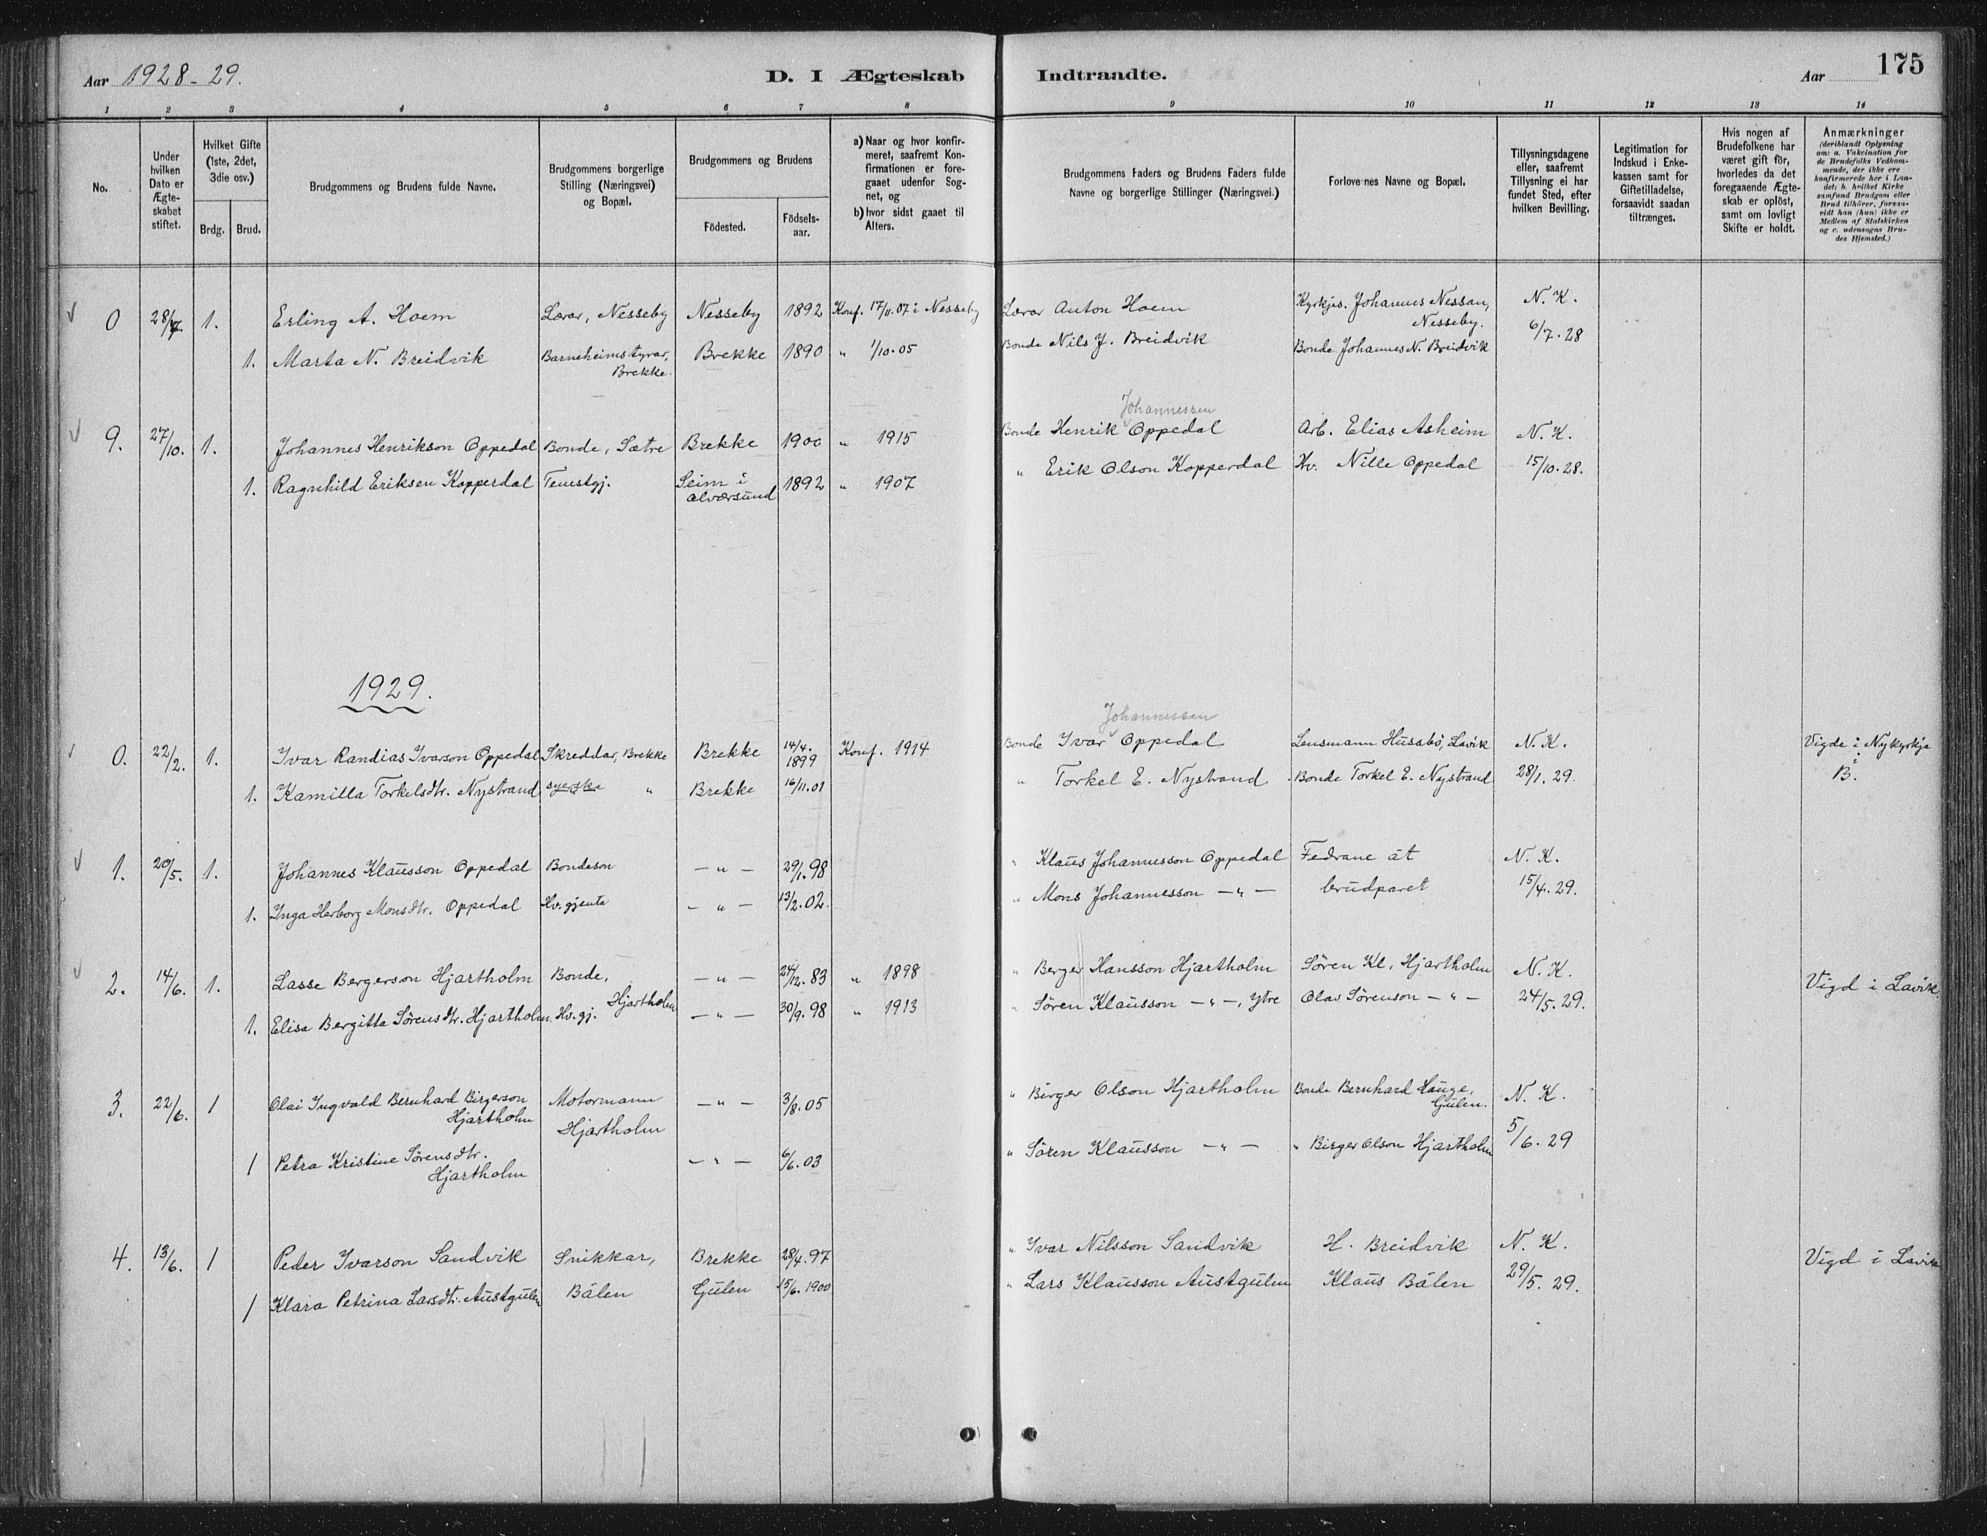 Aar 1928-29.
D. I Ægteskab Indtraadte.
Aar 175
1 2 3 4 5 6 7 8 9 10 11 12 13 14
No.
Under hvilken Dato er Ægteskabet stiftet.
Hvilket Gifte (1ste, 2det, 3die osv.)
Brdg. Brud.
Brudgommens og Brudens fulde Navne.
Brudgommens borgerlige Stilling (Næringsvei) og Bopæl.
Brudgommens og Brudens
Födested. Födselsaar.
a) Naar og hvor konfirmeret, saafremt Konfirmationen er foregaaet udenfor Sognet, og
b) hvor sidst gaaet til Alters.
Brudgommens Faders og Brudens Faders fulde Navne og borgerlige Stillinger (Næringsvei.)
Forlovernes Navne og Bopæl.
Tillysningsdagene eller, saafremt Tillysning ei har fundet Sted, efter hvilken Bevilling.
Legitimation for Indskud i Enkekassen samt for Giftetilladelse, forsaavidt saadan tiltrænges.
Hvis nogen af Brudefolkene har været gift för, hvorledes da det foregaaende Ægteskab er oplöst, samt om lovligt Skifte er holdt.
Anmærkninger (deriblandt Oplysning om: a. Vakcination for de Brudefolks Vedkommende, der ikke ere konfirmerede her i Landet; b. hvilket Kirkesamfund Brudgom eller Brud tilhörer, forsaavidt han (hun) ikke er Medlem af Statskirken og c. udensogns Brudes Hjemsted.)
0 28/7 1. Erling A. Hoem Lærar, Nesseby Nesseby 1892 Konf. 17/11.07 i Nesseby Lærar Anton Hoem Kyrkjes. Johannes Nessan, Nesseby. N. K.
1. Marta N. Breidvik Barneheimstyrar, Brekke. Brekke 1890 " 1/10.05 Bonde Nils J. Breidvik Bonde Johannes N. Breidvik 6/7.28
Johannessen
9. 27/10. 1. Johannes Henrikson Oppedal Bonde, Sætre Brekke 1900 " 1915 Bonde Henrik Oppedal Arb. Elias Asheim N. K.
1. Ragnhild Eriksen Kopperdal Tenestgj. Seim i Alversund 1892 " 1907 " Erik Olson Kopperdal Hv. Nille Oppedal 15/10.28.
1929.
Johannessen
0. 22/2. 1. Ivar Randias Ivarson Oppedal Skreddar, Brekke Brekke 14/4. 1899 Konf. 1914 Bonde Ivar Oppedal Lensmann Husabö, Lavik N. K. Vigde i Nykyrkja i B.
1. Kamilla Torkelsdtr. Nystrand syerska " Brekke 16/11.01 " Torkel E. Nystrand Bonde Torkel E. Nystrand 28/1.29.
1. 20/5. 1. Johannes Klausson Oppedal Bondeson — " — 29/1.98 " Klaus Johannesson Oppedal Fedrane åt N. K.
1. Inga Herborg Monsdtr. Oppedal Hv. gjenta — " — 13/2.02. " Mons Johannesson — " — brudparet 15/4.29.
2. 14/6. 1. Lasse Bergerson Hjartholm Bonde, Hjartholm — " — 24/12.83 " 1898 " Berger Hansson Hjartholm Sören Kl. Hjartholm N. K. Vigd i Lavik.
1. Elisa Bergitta Sörensdtr. Hjartholm. Hv. gj. — " — 30/9.98 " 1913 " Sören Klausson — " —, Ytre Olav Sörenson — " — 24/5.29.
3. 22/6. 1 Olai Ingvald Bernhard Birgerson Hjartholm Motormann Hjartholm — " — 3/8.05 " Birger Olson Hjartholm Bonde Bernhard Hauge, Gulen. N. K.
1 Petra Kristine Sörensdtr. Hjartholm — " — 6/6.03 " Sören Klausson — " — " Birger Olson Hjartholm 5/6.29
4. 13/6. 1 Peder Ivarson Sandvik Snikkar, Brekke 28/4.97 " Ivar Nilsson Sandvik H. Breidvik N. K. Vigd i Lavik
1 Klara Petrina Larsdtr. Austgulen Bålen Gulen 15/6.1900 " Lars Klausson Austgulen Klaus Bålen 29/5.29.